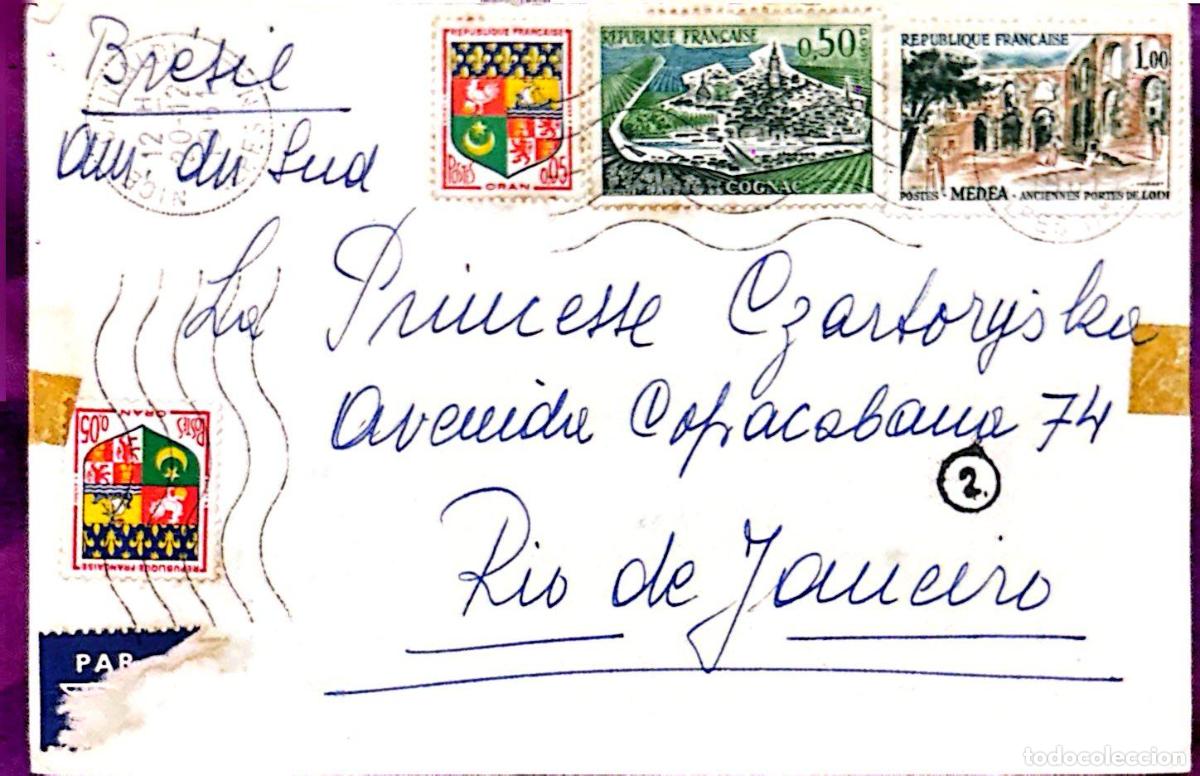 Brésil
Am du Sud
REPUBLIQUE FRANÇAISE
POSTES
0,05
ORAN
REPUBLIQUE FRANÇAISE
0,50
COGNAC
REPUBLIQUE FRANÇAISE
1,00
POSTES - MEDEA - ANCIENNES PORTES DE LODI
La Princesse Czartoryska
Avenida Copacabana 74
2.
Rio de Janeiro
ORAN
0,05
POSTES
REPUBLIQUE FRANÇAISE
PAR
todocoleccion